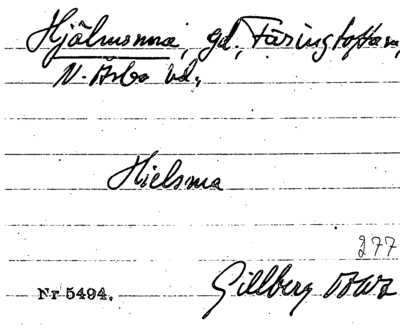 Hjälmsma, gd, Färingtofta sn,
N. Åsbo hd.
Hielsma
277
Gillberg
Nr 5494.